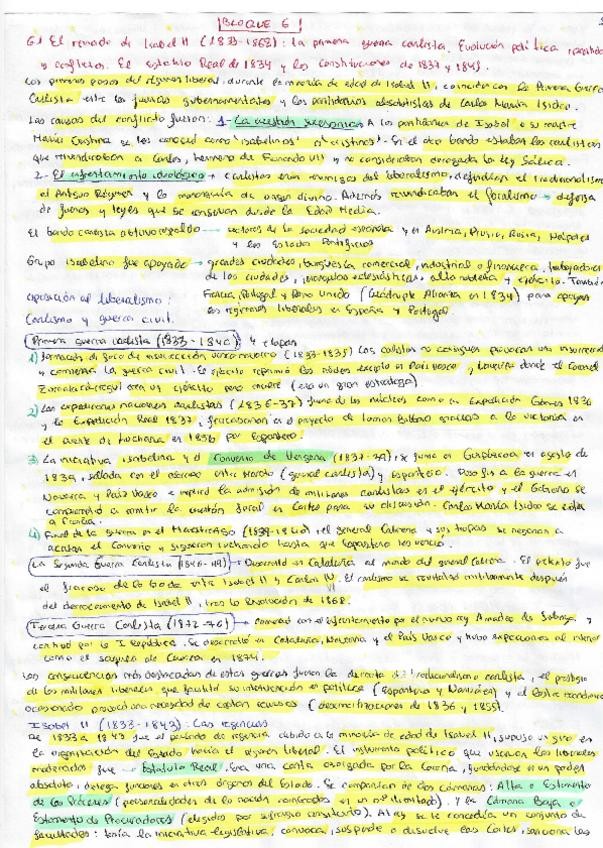 BLOQUE 6
6.1 El reinado de Isabel II (1833-1868): la primera guerra carlista. Evolución política, partidos
y conflictos. El estatuto Real de 1834 y las constituciones de 1837 y 1845.
Los primeros pasos del régimen liberal, durante la minoría de edad de Isabel II, coinciden con la Primera Guerra
Carlista entre las fuerzas gubernamentales y los partidarios absolutistas de Carlos María Isidro.
Las causas del conflicto fueron: 1- La cuestión sucesoria. A los partidarios de Isabel o su madre
María Cristina se les conoció como "isabelinos" o "cristinos". En el otro bando estaban los carlistas
que reivindicaban a Carlos, hermano de Fernando VII y no consideraban derogada la Ley Sálica.
2- El enfrentamiento ideológico → carlistas eran enemigos del liberalismo, defendían el tradicionalismo
el Antiguo Régimen y la monarquía de origen divino. Además reivindicaban el foralismo → defensa
de fueros y leyes que se conservan desde la Edad Media.
El bando carlista obtuvo respaldo → sectores de la sociedad española y en Austria, Prusia, Rusia, Nápoles
y los Estados Pontificios
Grupo isabelino fue apoyado → grandes ciudades, burguesía comercial, industrial o financiera, trabajadores
de las ciudades, jerarquías eclesiásticas, alta nobleza y ejército. También
Francia, Portugal y Reino Unido (Cuádruple Alianza en 1834) para apoyar
los regímenes liberales en España y Portugal.
oposición al liberalismo:
Carlismo y guerra civil.
Primera Guerra carlista (1833-1840) 4 etapas
1) Formación de foco de insurrección vasconavarro (1833-1835) Los carlistas no consiguen provocar una insurrección
y comienza la guerra civil. El ejército reprimió los nobles excepto en País Vasco y Navarra donde el Coronel
Zumalacárregui crea un ejército pero muere (era un gran estratega)
2) Las expediciones nacionales carlistas (1836-37) fuera de los núcleos como la Expedición Gómez 1836
y la Expedición Real 1837, fracasaron en el proyecto de tomar Bilbao gracias a la victoria en
el puente de Luchana en 1836 por Espartero.
3. La iniciativa isabelina y el Convenio de Vergara (1837-39), se firma en Guipúzcoa en agosto de
1839, sellado con el acuerdo entre Maroto (general carlista) y Espartero. Puso fin a la guerra en
Navarra y País Vasco e implicó la admisión de militares carlistas en el ejército y el Gobierno se
comprometió a remitir la cuestión foral en Cortes para su discusión. Carlos María Isidro se exilia
a Francia.
4) Final de la guerra en el Maestrazgo (1839-1840), el general Cabrera y sus tropas se negaron a
aceptar el Convenio y siguieron luchando hasta que Espartero les venció.
La Segunda Guerra Carlista (1846-49) → Desarrolló en Cataluña al mando del general Cabrera. El pretexto fue
el fracaso de la boda entre Isabel II y Carlos VI. El carlismo se revitalizó militarmente después
del derrocamiento de Isabel II, tras la Revolución de 1868.
Tercera Guerra Carlista (1872-76) → comenzó con el enfrentamiento por el nuevo rey Amadeo de Saboya, y
continuó por la I República. Se desarrolló en Cataluña, Navarra y el País Vasco y hubo expediciones al interior
como el saqueo de Cuenca en 1874.
Las consecuencias más destacadas de estas guerras fueron la derrota del tradicionalismo carlista, el prestigio
de los militares liberales que facilitó su intervención en política (Espartero y Narváez) y el lastre económico
ocasionado provocando la necesidad de captar recursos (desamortizaciones de 1836 y 1855).
Isabel II (1833-1843): Las regencias
De 1833 a 1843 fue el periodo de regencia debido a la minoría de edad de Isabel II, supuso un giro en
la organización del Estado hacia el régimen liberal. El instrumento político que usaron los liberales
moderados fue → Estatuto Real. Era una carta otorgada por la Corona, fundándose en un poder
absoluto, delega funciones en otros órganos del Estado. Se componían de dos cámaras: Alta o Estamento
de los Próceres (personalidades de la nación nombradas en un nº ilimitado). Y la Cámara Baja o
Estamento de Procuradores (elegidos por sufragio censitario). Al rey se le concedía un conjunto de
facultades: tenía la iniciativa legislativa, convoca, suspende o disuelve las Cortes, sanciona las